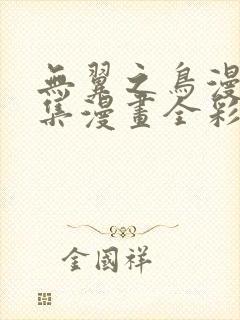 無翼之鳥漫
集漫畫全彩
金國祥